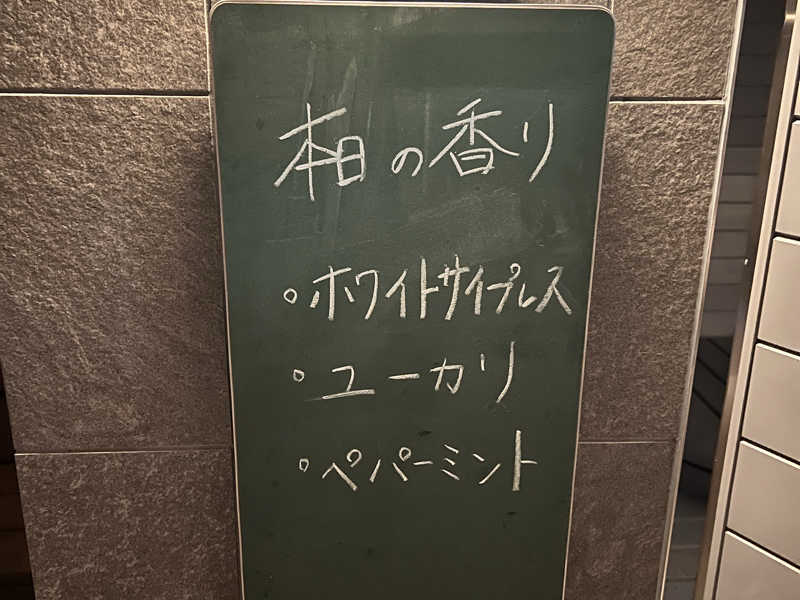 本日の香り
・ホワイトサイプレス
・ユーカリ
・ペパーミント